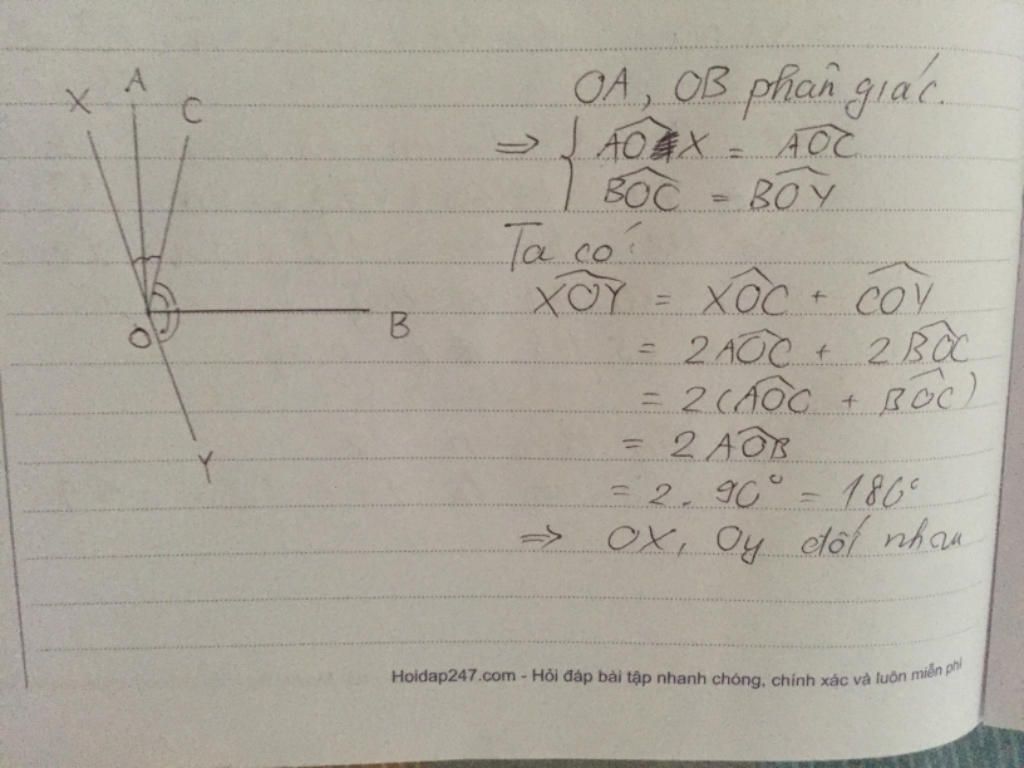 X
A
C
O
B
Y
OA, OB phân giác.
⇒ { AOX = AOC
BOC = BOY
Ta có:
XOY = XOC + COY
= 2AOC + 2BOC
= 2(AOC + BOC)
= 2AOB
= 2. 90° = 180°
⇒ OX, Oy đối nhau
Hoidap247.com - Hỏi đáp bài tập nhanh chóng, chính xác và luôn miễn phí